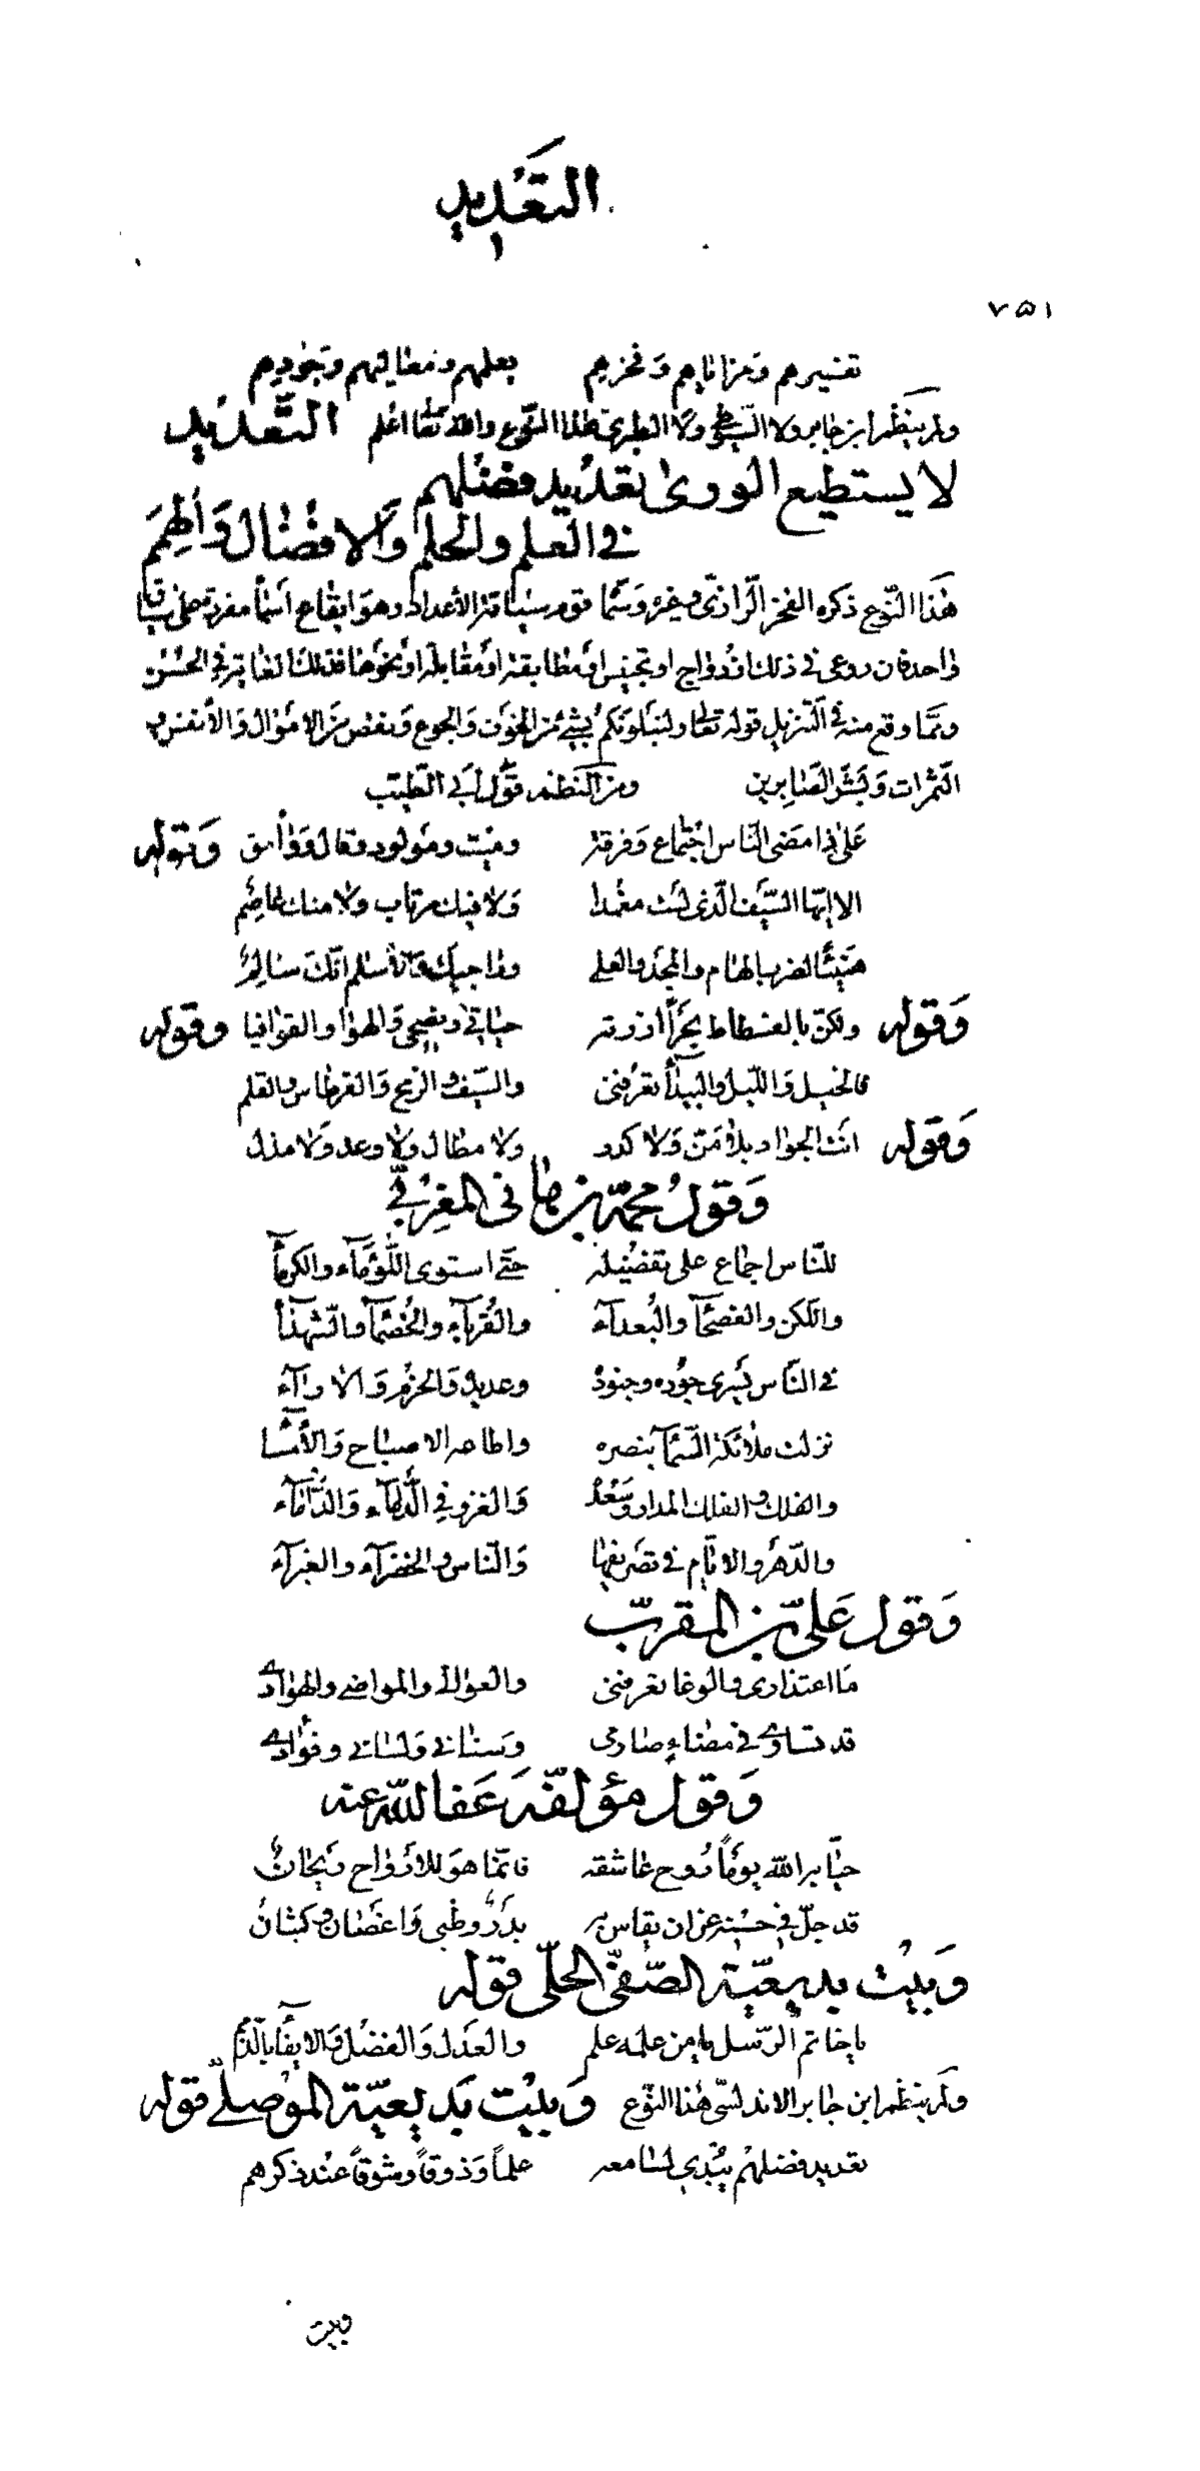 التعديد
١
٧٥١
تفسيرهم ومزاياهم وفخرهم بعلمهم ومعاليهم وبجودهم
ولم ينظم ابن جابر ولا السيوطي ولا الطبري هذا النوع والله تعالى اعلم التعديد
لا يستطيع الورى تعديد فضلهم
في العلم والحلم والافضال والهمم
هذا النوع ذكره الفخر الرازي وغيره وسماه قوم سياقة الأعداد وهو ايقاع اسماء مفردة على سياق
واحد فان روعي في ذلك ازدواج او تجنيس او مطابقة او مقابلة او نحوها فذلك الغاية في الحسن
ومما وقع منه في التنزيل قوله تعالى ولنبلونكم بشيء من الخوف والجوع ونقص من الاموال والأنفس و
الثمرات وبشر الصابرين ومن النظم قول ابي الطيب
على ذا مضى الناس اجتماع وفرقة وميت ومولود وقال ووامق وقوله
الا ايها السيف الذي لست مغمدا ولا فيك مرتاب ولا منك عاصم
هنيئا لضرب الهام والمجد والعلى وراجيك والاسلام انك سالم
وقوله ولكن بالفسطاط بحرا ازرته حياتي ونصحي والهوى والقوافيا وقوله
فالخيل والليل والبيداء تعرفني والسيف والرمح والقرطاس والقلم
وقوله انت الجواد بلا من ولا كدر ولا مطال ولا وعد ولا مذل
وقول محمد بن هاني المغربي
للناس اجماع على تفضيله حتى استوى اللؤماء والكرماء
واللكن والفصحاء والبعداء والقرباء والخصماء والشهداء
في الناس يسري جوده وجنوده وعديده والحزم والاراء
نزلت ملائكة السماء بنصره واطاعه الاصباح والأمساء
والفلك والفلك المدار وسعده والغزو في الدأماء والدأماء
والدهر والايام في تصريفها والناس والخضراء والغبراء
وقول علي بن المقرب
ما اعتذاري والوغا تعرفني والعوالي والمواضي والهوادي
قد تساوى في مضاء صارمي وسناني ولساني وفؤادي
وقول مؤلفه عفا الله عنه
حيا به الله يوما روح عاشقه فانما هو للارواح ريحان
قد جل في حسنه عن ان يقاس به بدر وظبي واغصان وكثبان
وبيت بديعية الصفي الحلي قوله
يا خاتم الرسل يا من علمه علم والعدل والفضل والايفاء بالذمم
ولم ينظم ابن جابر الاندلسي هذا النوع وبيت بديعية الموصلي قوله
تعديد فضلهم يبدي لسامعه علما وذوقا وشوقا عند ذكرهم
وبيت